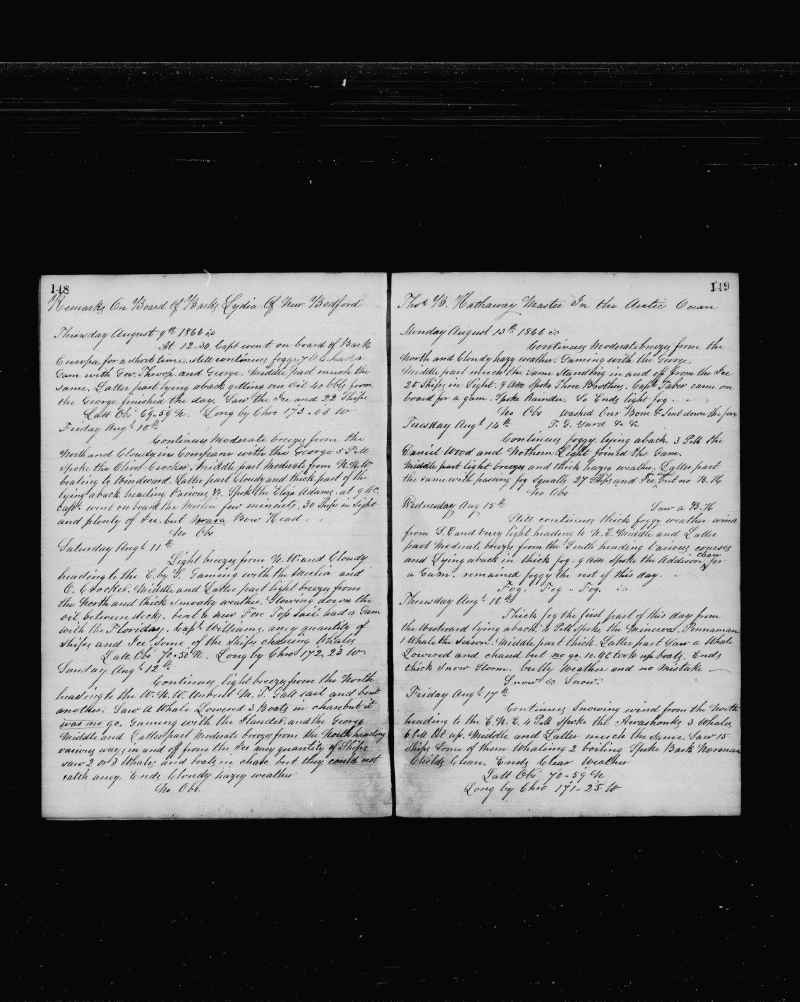 148
Remarks On Board Of Barke Lydia Of New Bedford
Thursday August 9th 1866
At 12.30 Capt went on board of Bark
Europa for a short time. still continues foggy 7 O C had a
Gam with Gov. Throop and George. Middle part much the
same. Latter part lying aback getting our Oil 40 bbls from
the George finished the day. Saw the Ice and 22 Ships
Latt Obs 69-59 N. Long by Chro 173-03 W
Friday Augt 10th
Continues Moderate breezes from the
North and Cloudy in Company with the George 3 P.M
Spoke the Oliver Crocker. Middle part Moderate from N.N.W
beating to Windward. Latter part Cloudy and thick part of the
lying aback heading Various &c. Spoke the Eliza Adams. at 9 O C.
Capt went on board the Merlin few minuets. 30 Ships in Sight
and plenty of Ice. but nary Bow Head.
No Obs
Saturday Augt 11th
Light breezes from N. W and Cloudy
heading to the E. by S. Gaming with the Merlin and
O. Crocker. Middle and Latter part light breezes from
the North and thick Smoky weather. Stowing down the
oil between decks. bent a new Fore Top sail. had a Gam
with the Floriday. Capt Williams, any quantity of
Ships and Ice Some of the Ships chasing Whales
Latt Obs 70-50 N. Long by Chro 172, 23 W
Sunday Augt 12th
Continues light breezes from the North
heading to the W. N. W. Unbent M. T. Gall sail and bent
another. Saw A Whale Lowered 3 Boats in chase but it
was no go. Gaming with the and the George
Middle and Latter part Moderate breeze from the North heading
various ways in and off from the Ice any quantity of Ships
saw 2 or 3 Whales and boats in chase but they could not
catch any. Ends Cloudy hazey weather
No Obs.
149
Thos B. Hathaway Master In the Arctic Ocean
Monday August 13th 1866
Continues Moderate breezes from the
North and Cloudy hazy weather. Gaming with the George.
Middle part much the same Standing in and off from the Ice
25 Ships in Sight. 9 AM Spoke Three Brothers. Capt Taber came on
board for a gam. Spoke Rainder. So Ends light fog.
No Obs washed Our Bone & Sent down the fore
Tuesday Augt 14th T. G. Yard &c &c
Continues foggy lying aback. 3 P.M the
Daniel Wood and Nothern Light joined the Gam.
Middle part light breezes and thick hazy weather. Latter part
the same with passing fog Squalls 27 Ships and Ice but no B. H
No Obs
Wednesday Aug 15th Saw a B. H
Still continues thick foggy weather wind
from S. E and very light heading to N. E. Middle and Latter
part Moderate breezes from the South heading Various courses
and Lying aback in thick fog. 9 AM spoke the Addison clean for
a Gam. remained foggy the rest of this day.
Fog. Fog. Fog.
Thursday Augt 16th
Thick fog the first part of this day from
the Westward lying aback. 3 P.M Spoke the Minerva, Pennaman
1 Whale the Season. Middle part thick. Latter part Saw a Whale
Lowered and chased but no go. 10. OC took up boats. Ends
thick Snow Storm. bully Weather and no mistake
Snow is Snow.
Friday Augt 17th
Continues Snowing wind from the North
heading to the E. N. E. 4 P.M Spoke the Awashonks 3 Whales
6 P.M up. Middle and Latter much the same. Saw 15
Ships Some of them Whaleing 2 boiling Spoke Bark Norman
Childs Clean. Ends Clear Weather
Latt Obs 70-59 N
Long by Chro 171-25 W